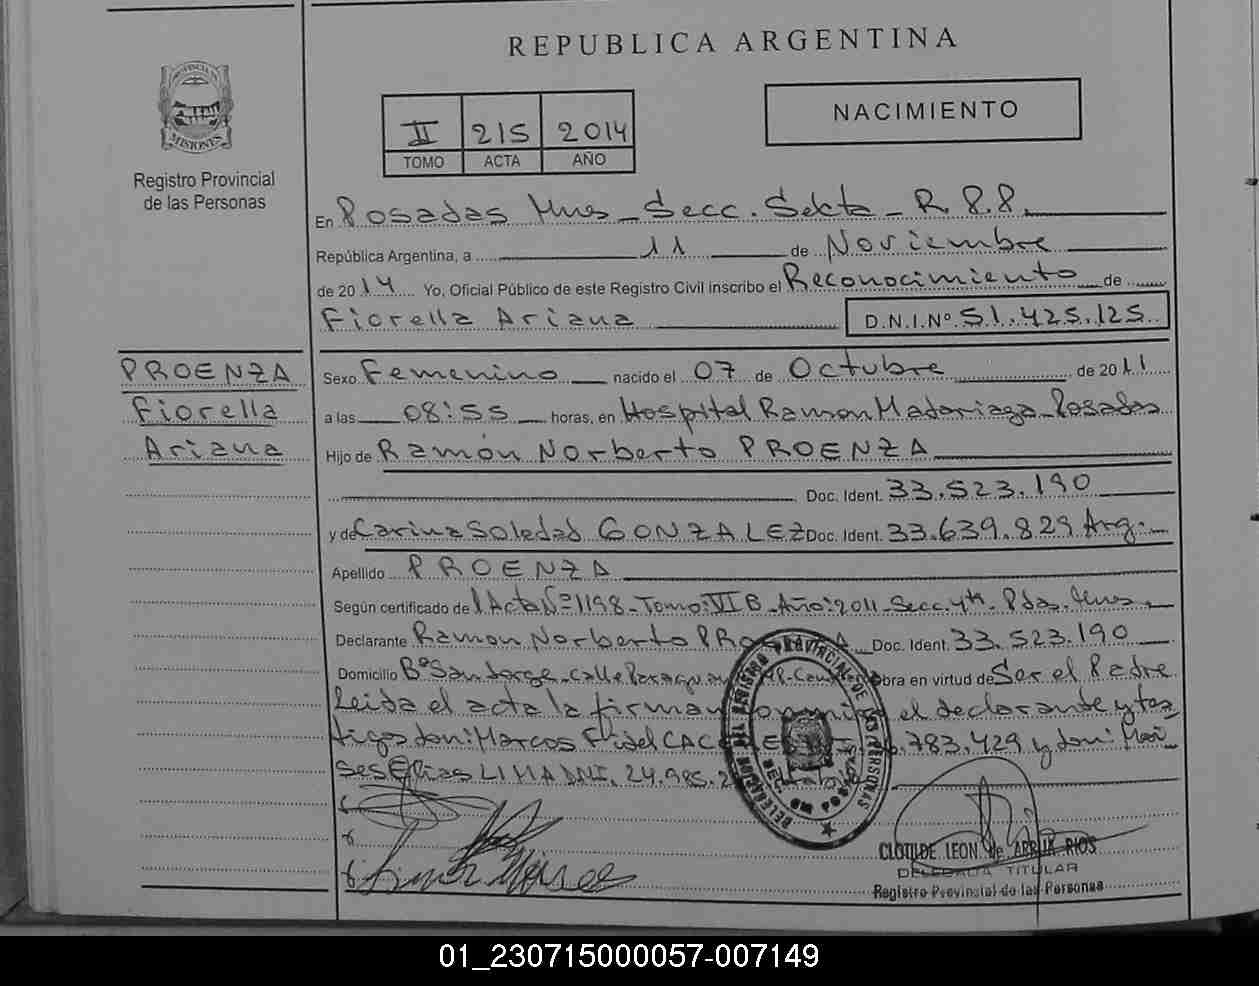 REPUBLICA ARGENTINA
PROVINCIA DE
MISIONES
Registro Provincial
de las Personas
NACIMIENTO
II 215 2014
TOMO ACTA AÑO
En Posadas Mnes_Secc. Sexta_R.P.P.
República Argentina, a 11 de Noviembre
de 2014 Yo, Oficial Público de este Registro Civil inscribo el Reconocimiento de
Fiorella Ariana D.N.I.Nº 51.425.125
PROENZA
Fiorella
Ariana
Sexo Femenino nacido el 07 de Octubre de 2011
a las 08:55 horas, en Hospital Ramon Madariaga_Posadas
Hijo de Ramón Norberto PROENZA
Doc. Ident. 33.523.190
y de Carina Soledad GONZALEZ Doc. Ident. 33.639.829 Arg.
Apellido PROENZA
Según certificado de Acta Nº 1198_Tomo: VI B_Año: 2011_Secc. 4ta_Pdas. Mnes.
Declarante Ramon Norberto Doc. Ident. 33.523.190
Domicilio Bº San Jorge_Calle obra en virtud de Ser el Padre
Leida el acta la firman el declarante y tes_
tigos don: Marcos Fidel 783.429 y don: Moi_
ses Elias LIMA DNI. 24.985.
DELEGACION DEL REGISTRO PROVINCIAL DE LAS PERSONAS
POSADAS
CLOTILDE LEON de RIOS
DELEGADA TITULAR
Registro Provincial de las Personas
01_230715000057-007149